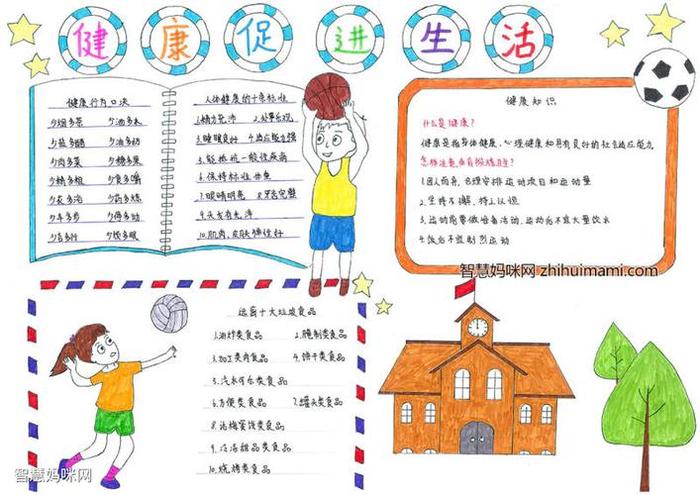 健康促进生活
健康行为口决
少烟多茶 少酒多水
少盐多醋 少油多动
少肉多菜 少糖多果
少糖多粗 少食多嚼
少衣多浴 少药多练
少车多步 少停多动
少言多行 少烦多眠
人体健康的十条标准
1.精力充沛 2.处事乐观
3.睡眠良好 4.适应能力强
5.能抵抗一般性疾病
6.保持标准体重
7.眼睛明亮 8.牙齿完整
9.头发有光泽
10.肌肉、皮肤弹性好
健康知识
什么是健康?
健康是指身体健康、心理健康和具有良好的社会适应能力
怎样注意体育锻炼卫生?
1.因人而异,合理安排运动项目和运动量
2.坚持不懈,持之以恒
3.运动前要做准备活动,运动后不宜大量饮水
4.饭后不宜剧烈运动
智慧妈咪网 zhihuimami.com
远离十大垃圾食品
1.油炸类食品 2.腌制类食品
3.加工类肉食品 4.饼干类食品
5.汽水可乐类食品
6.方便类食品 7.罐头类食品
8.话梅蜜饯类食品
9.冷冻甜品类食品
10.烧烤类食品
智慧妈咪网